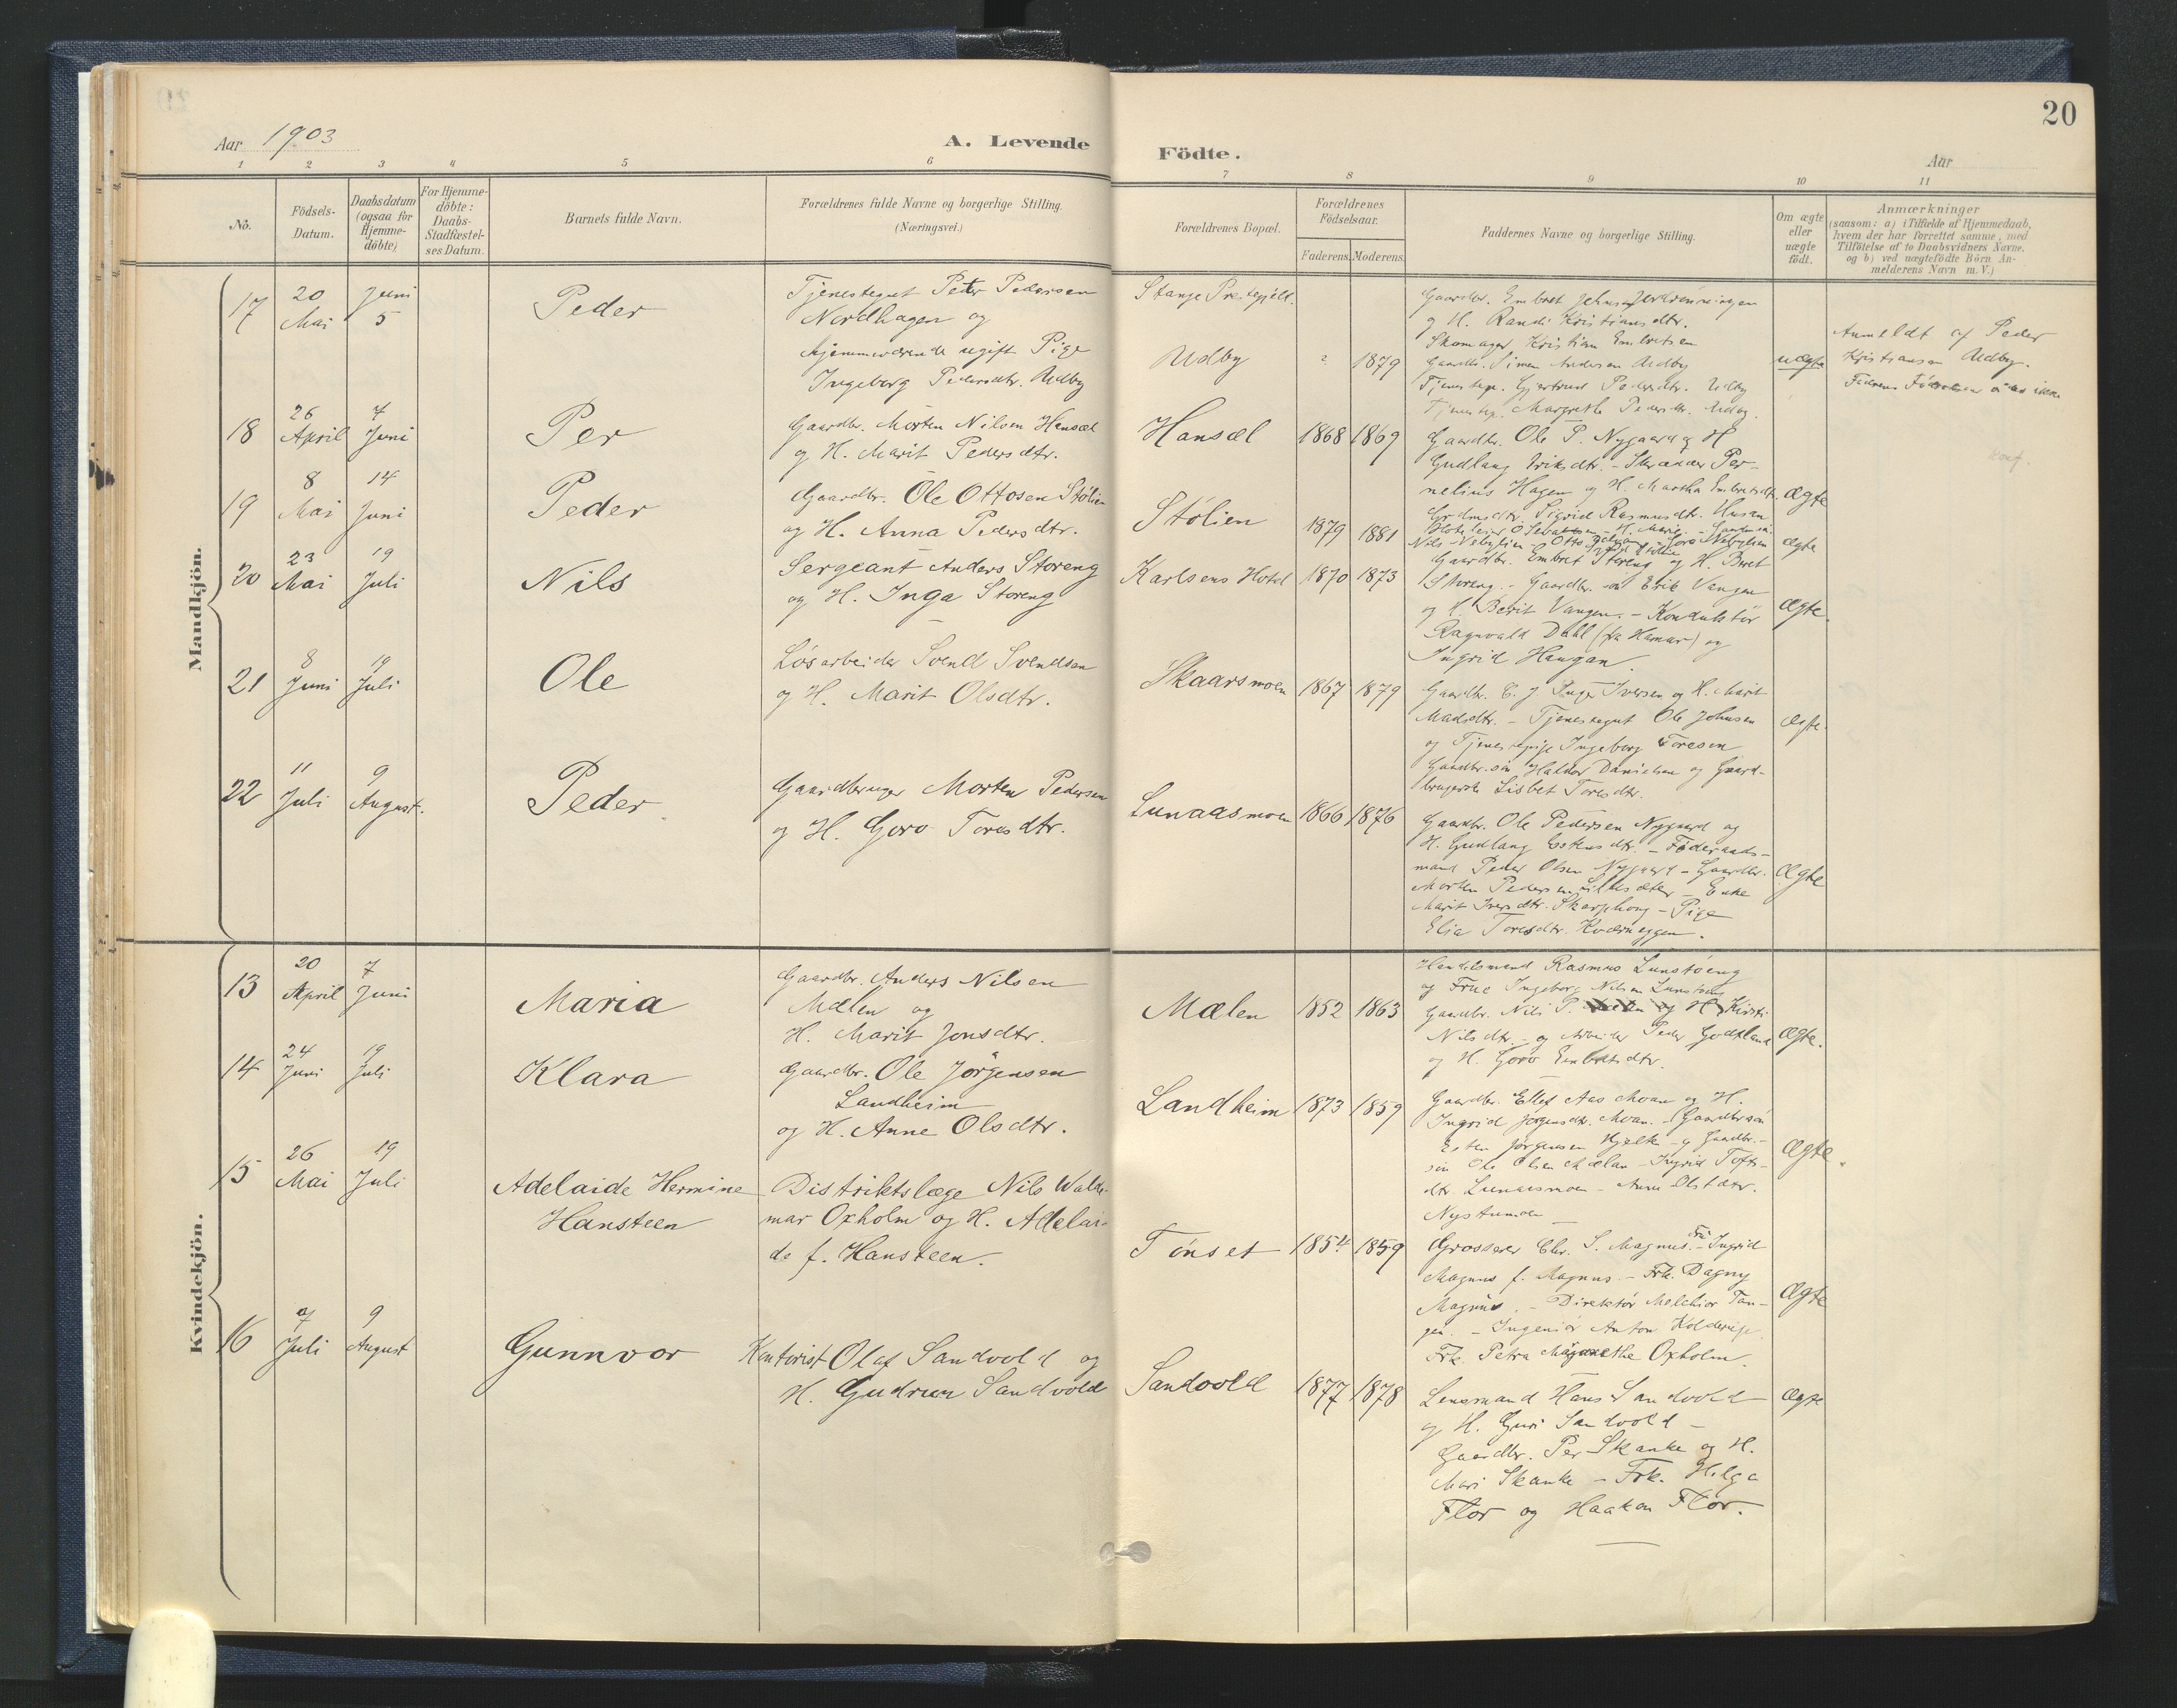 20
Aar 1903
A. Levende
Födte.
Aar
1
2
3
4
5
6
7
8
9
10
11
No.
Födsels-
Datum.
Daabsdatum
(ogsaa for
Hjemme-
döbte)
For Hjemme-
döbte:
Daabs-
Stadfæstel-
ses Datum.
Barnets fulde Navn.
Forældrenes fulde Navne og borgerlige Stilling.
(Næringsvei.)
Forældrenes Bopæl.
Forældrenes
Födselsaar.
Faderens.
Moderens.
Faddernes Navne og borgerlige Stilling.
Om ægte
eller
uægte
födt.
Anmærkninger
(saasom: a) i Tilfælde af Hjemmedaab,
hvem der har forrettet samme, med
Tilföielse af to Daabsvidners Navne,
og b) ved uægtefödte Börn An-
melderens Navn m.V.)
Mandkjön.
17
20
Mai
Juni
5
Peder
Tjenestegut Peter Pedersen
Nordhagen og
hjemmeværende ugift Pige
Ingeborg Pedersdtr. Udby
Stange Prestegjeld.
Udby
?
1879
Gaardbr. Embret
og H. Randi Kristiansdtr.
Skomager Kristian Embretsen
Gaardbr. Simen Andersen Udby
Tjenestep. Gjertrud Pedersdtr. Udby
Tjenestep. Margrethe Pedersdtr. Udby.
uægte
Anmeldt af Peder
Kristiansen Udby.
18
26
April
7
Juni
Per
Gaardbr. Morten Nilsen Hansæl
og H. Marit Pedersdtr.
Hansæl
1868
1869
Gaardbr. Ole P. Nygaard og H.
Gudlaug Eriksdtr. - Skræder Per-
nelius Hagen og H. Martha Embretsdtr.
Sigrid Rasmusdtr. Husan
Ægte
konf.
19
8
Mai
14
Juni
Peder
Gaardbr. Ole Ottosen Stölien
og H. Anna Pedersdtr.
Stölien
1879
1881
ægte
20
23
Mai
19
Juli
Nils
Sergeant Anders Storeng
og H. Inga Storeng
Karlsens Hotel
1870
1873
Gaardbr. Embret Storeng og H. Beret
Storeng. - Gaardbr. Erik Vangen
og H. Berit Vangen. - Konduktör
Ragnvald Dahl (fra Hamar) og
Ingrid Haugan.
Ægte.
21
8
Juni
19
Juli
Ole
Lösarbeider Svend Svendsen
og H. Marit Olsdtr.
Skaarsmoen
1867
1879
Iversen og H. Marit
Madsdtr. - Tjenestegut Ole Johnsen
og Tjenestepige Ingeborg Toresen
Gaardbr.sön Haldor Danielsen og Gaard-
brugerske Lisbet Toresdtr.
Ægte.
22
11
Juli
9
August.
Peder
Gaardbruger Morten Pedersen
og H. Goro Toresdtr.
Lunaasmoen
1866
1876
Gaardbr. Ole Pedersen Nygaard og
H. Gudlaug Estensdtr. - Föderaads-
mand Peder Olsen Nygaard - Gaardbr.
Morten Pedersen - Enke
Marit Iversdtr. - Pige
Elie Toresdtr. Kværneggen.
Ægte
Kvindekjön.
13
20
April
7
Juni
Maria
Gaardbr. Anders Nilsen
Mælen og
H. Marit Jonsdtr.
Mælen
1852
1863
Handelsmand Rasmus Lunstöeng
og Frue Ingeborg Nilsen Lunstöeng
Gaardbr. Nils P. og H. Kirsti
Nilsdtr. - og Arbeider Peder Godtland
og H. Goro Embretsdtr.
Ægte.
14
24
Juni
19
Juli
Klara
Gaardbr. Ole Jörgensen
Landheim
og H. Anne Olsdtr.
Landheim
1873
1859
Gaardbr. Ellef Aas Moan og H.
Ingrid Jörgensdtr. Moan. - Gaardbrsön
Esten Jörgensen Hjelte - og Gaardbr.-
sön Ole Olsen Mælan - Ingrid Tofts-
dtr. Lunaasmoen - Anne Olsdtr.
Nystumoen
Ægte.
15
26
Mai
19
Juli
Adelaide Hermine
Hansteen
Distriktslæge Nils Walde-
mar Oxholm og H. Adelai-
de f. Hansteen.
Tönset
1854
1859
Grosserer Chr. S. Magnus. - Fru Ingrid
Magnus f. Magnus. - Frk. Dagny
Magnus. - Direktör Melchior Tan-
gen. - Ingeniör Anton Kolderup.
Frk. Petra Margrethe Oxholm.
Ægte
16
7
Juli
9
August
Gunnvor
Kontorist Olaf Sandvold og
H. Gudrun Sandvold
Sandvold
1877
1878
Lensmand Hans Sandvold
og H. Guri Sandvold -
Gaardbr. Per Skanke og H.
Mari Skanke - Frk. Helga
Flor og Haakon Flor.
Ægte